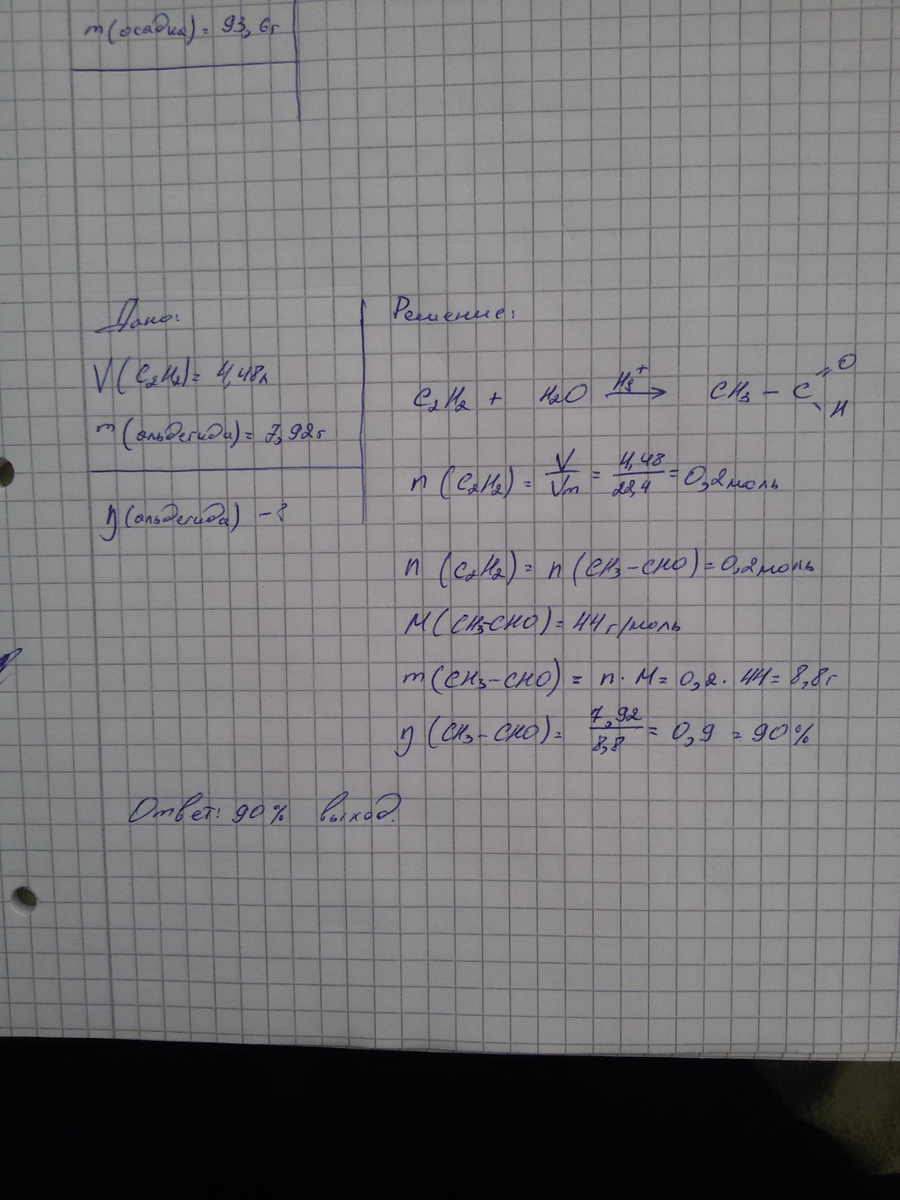 m(осадка) = 93,6г
Дано:
V(C₂H₂) = 4,48л
m(альдегида) = 7,92г
η(альдегида) - ?
Решение:
C₂H₂ + H₂O Hg⁺ → CH₃ - C =O \ H
n (C₂H₂) = V/Vm = 4,48/22,4 = 0,2моль
n (C₂H₂) = n (CH₃-CHO) = 0,2моль
M(CH₃-CHO) = 44г/моль
m(CH₃-CHO) = n · M = 0,2 · 44 = 8,8г
η (CH₃-CHO) = 7,92/8,8 = 0,9 = 90%
Ответ: 90% выход.